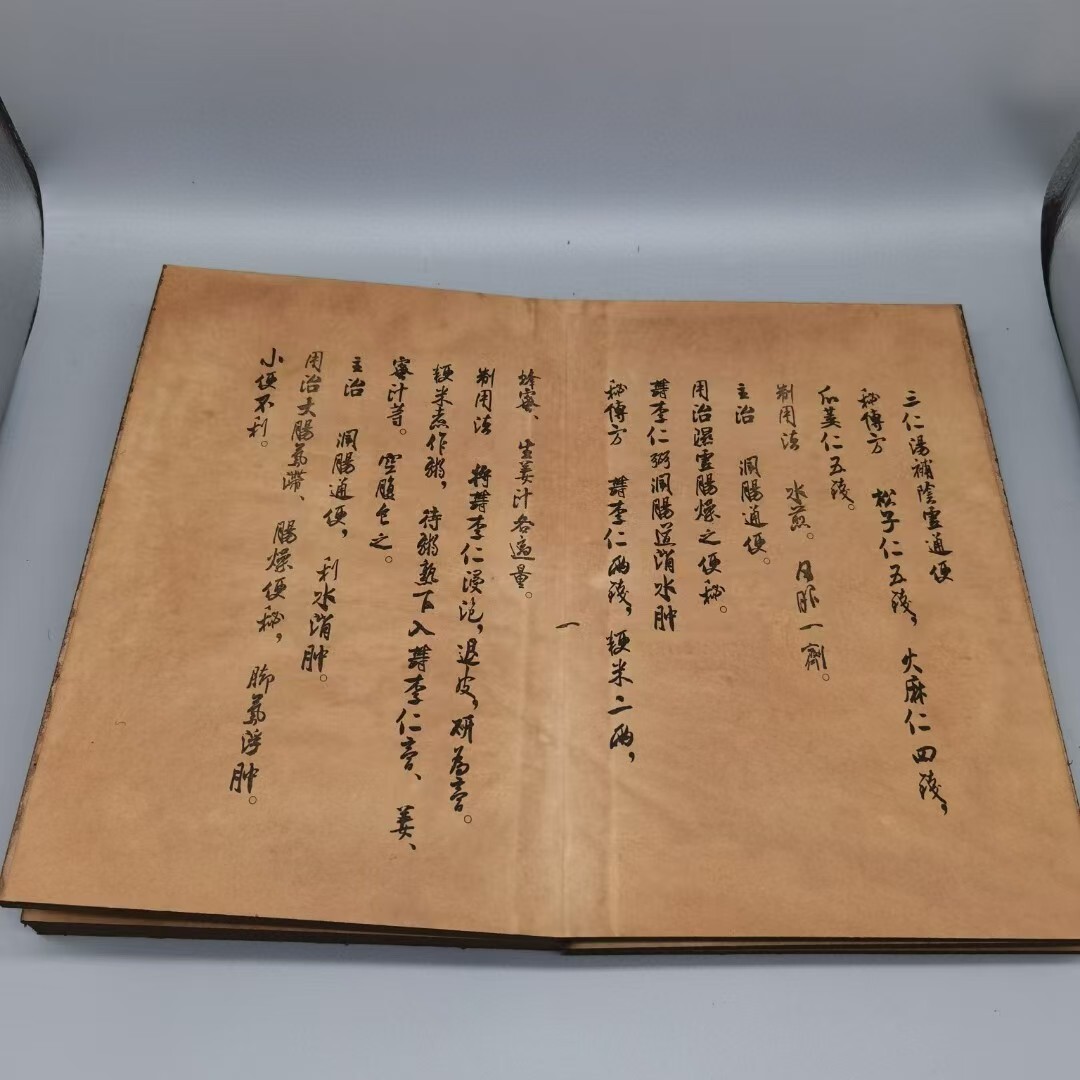 三仁湯補陰虛通便
秘傳方　松子仁五錢，火麻仁四錢，
瓜蔞仁五錢。
製用法　水煎。日服一劑。
主治　潤腸通便。
用治濕虛腸燥之便秘。
鬱李仁粥潤腸道消水肿
秘傳方　鬱李仁兩錢，粳米二兩，
一
蜂蜜、生姜汁各適量。
製用法　將鬱李仁浸泡，退皮，研為膏。
粳米煮作粥，待粥熟下入鬱李仁膏、姜、
蜜汁等。空腹食之。
主治　潤腸通便，利水消肿。
用治大腸氣滯、腸燥便秘，脚氣浮肿。
小便不利。